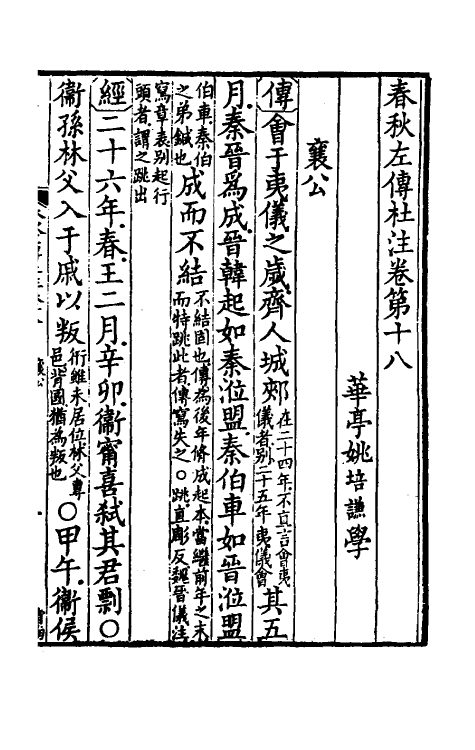 春秋左傳杜注卷第十八
華亭姚培謙學
襄公
傳會于夷儀之歲齊人城郟在二十四年不直言會夷儀者别二十五年夷儀會其五
月秦晉爲成晉韓起如秦涖盟秦伯車如晉涖盟
伯車秦伯之弟鍼也成而不結不結固也傳爲後年脩成起本當繼前年之末而特跳此者傳寫失之○跳直彫反魏晉儀注
寫章表别起行頭者謂之跳出
經二十六年春王二月辛卯衞甯喜弑其君剽○
衞孫林父入于戚以叛衎雖未居位林父專邑背國猶爲叛也○甲午衞侯
襄公